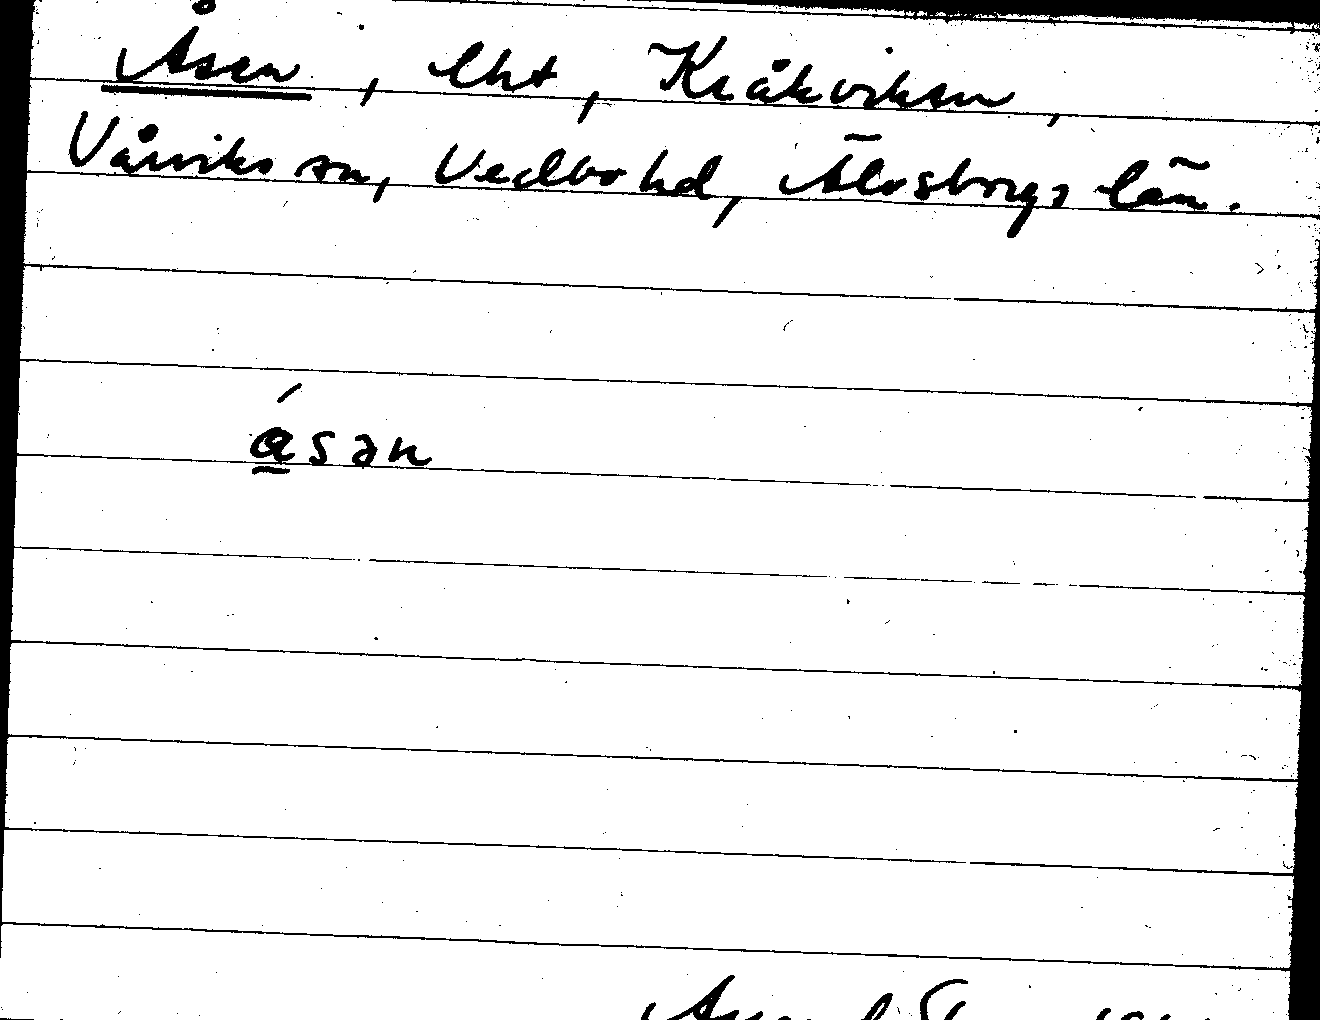 Åsen, lht, Kråkviksn,
Vårviks sn, Vedbo hd, Älvsborgs län.
åsən